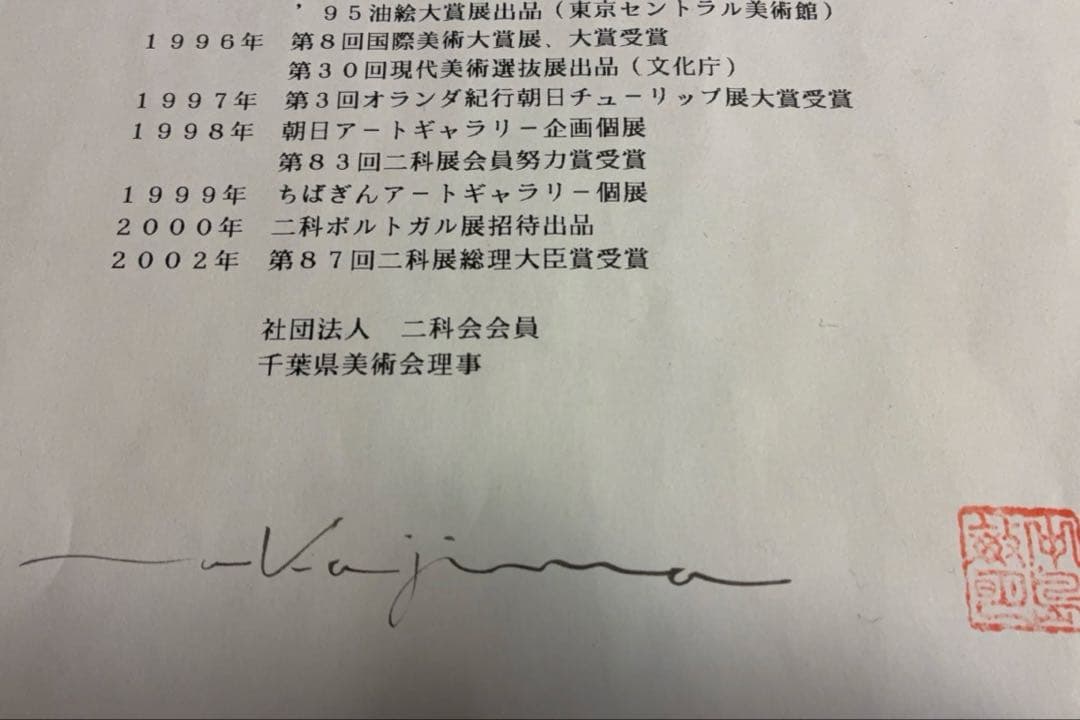 ’９５油絵大賞展出品（東京セントラル美術館）
１９９６年　第８回国際美術大賞展、大賞受賞
第３０回現代美術選抜展出品（文化庁）
１９９７年　第３回オランダ紀行朝日チューリップ展大賞受賞
１９９８年　朝日アートギャラリー企画個展
第８３回二科展会員努力賞受賞
１９９９年　ちばぎんアートギャラリー個展
２０００年　二科ポルトガル展招待出品
２００２年　第８７回二科展総理大臣賞受賞
社団法人　二科会会員
千葉県美術会理事
nakajima
中島敏明